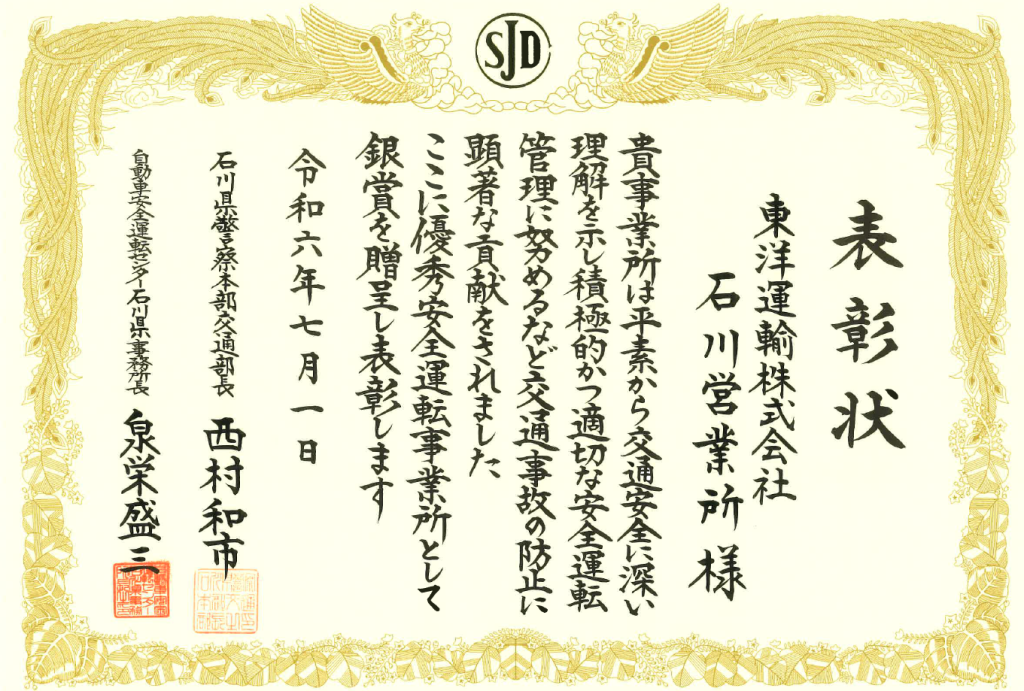 SJD
表彰状
東洋運輸株式会社
石川営業所様
貴事業所は平素から交通安全に深い
理解を示し積極的かつ適切な安全運転
管理に努めるなど交通事故の防止に
顕著な貢献をされました
ここに優秀安全運転事業所として
銀賞を贈呈し表彰します
令和六年七月一日
石川県警察本部交通部長 西村和市
自動車安全運転センター石川県事務所長 泉栄盛三